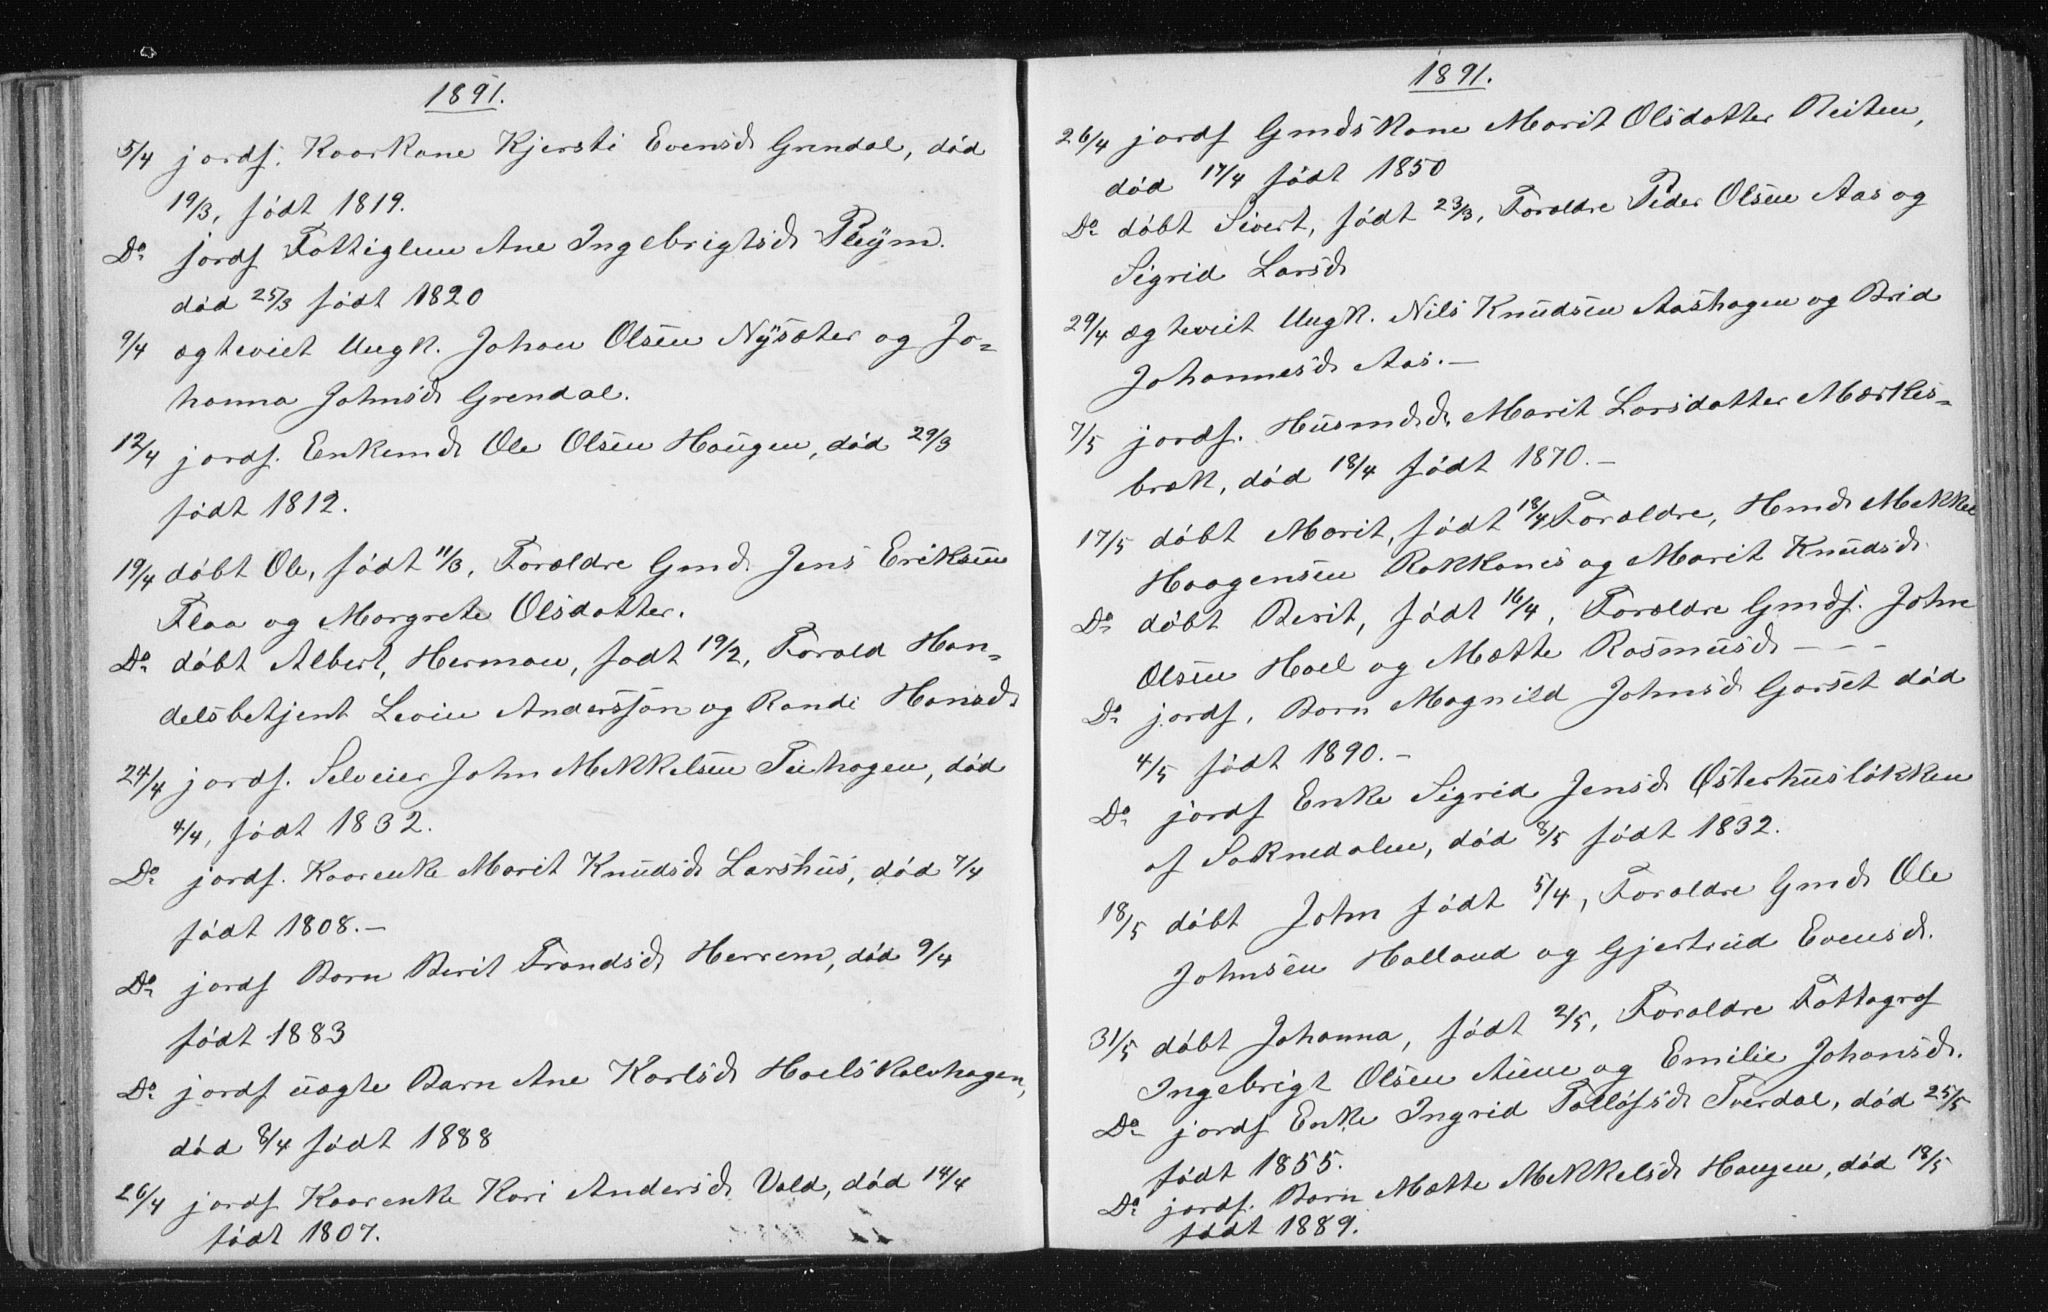 1891.
5/4 jordf. Kaarkone Kjersti Evensd Grendal, død
19/3, født 1819.
Do jordf Fattiglem Ane Ingebrigtsd Pleÿm.
død 25/3 født 1820
9/4 ægteviet Ungk. Johan Olsen Nÿsæter og Jo-
hanna Johnsd Grendal.
12/4 jordf. Enkemd Ole Olsen Haugen, død 29/3
født 1812.
19/4 døbt Ole, født 11/3, Forældre Gmd. Jens Eriksen
Flaa og Margrete Olsdatter.
Do døbt Albert, Herman, født 19/2, Foræld Han-
delsbetjent Levin Andersson og Randi Hansd.
24/4 jordf. Selveier John Mekkelsen Tuhagen, død
4/4, født 1832.
Do jordf. Kaarenke Marit Knudsd Larshus, død 7/4
født 1808.-
Do jordf Barn Berit Trondsd, Herrem, død 9/4
født 1883
Do jordf uægte Barn Ane Karlsd Hoelskalvhagen,
død 8/4 født 1888
26/4 jordf Kaarenke Kari Andersd Vold, død 14/4
født 1807.
1891.
26/4 jordf Gmdskone Marit Olsdatter Reiten,
død 17/4 født 1850
Do døbt Sivert, født 23/3, Forældre Peder Olsen Aas og
Sigrid Larsd
29/4 ægteviet Ungk. Nils Knudsen Aashagen og Brid
Johannesd Aas.-
7/5 jordf. Husmdd. Marit Larsdatter Mærkes-
bræk, død 18/4 født 1870.-
17/5 døbt Marit, født 18/4, Forældre, Hmd Mekkel
Haagensen Rokkones og Marit Knudsd.
Do døbt Berit, født 16/4, Forældre Gmdf. John
Olsen Hoel og Mætte Rasmusd - - -
Do jordf, Barn Magnild Johnsd Gorset død
4/5 født 1890.-
Do jordf Enke Sigrid Jensd Østerhusløkken
af Soknedalen, død 8/5 født 1832.
18/5 døbt John født 5/4, Forældre Gmd Ole
Johnsen Halland og Gjertrud Evensd.
31/5 døbt Johanna, født 2/5, Forældre Fottograf
Ingebrigt Olsen Aune og Emilie Johansd.
Do jordf Enke Ingrid Tolløfsd Tverdal, død 25/5
født 1855.
Do jordf. Barn Mætte Mekkelsd Haugen, død 18/5
født 1889.